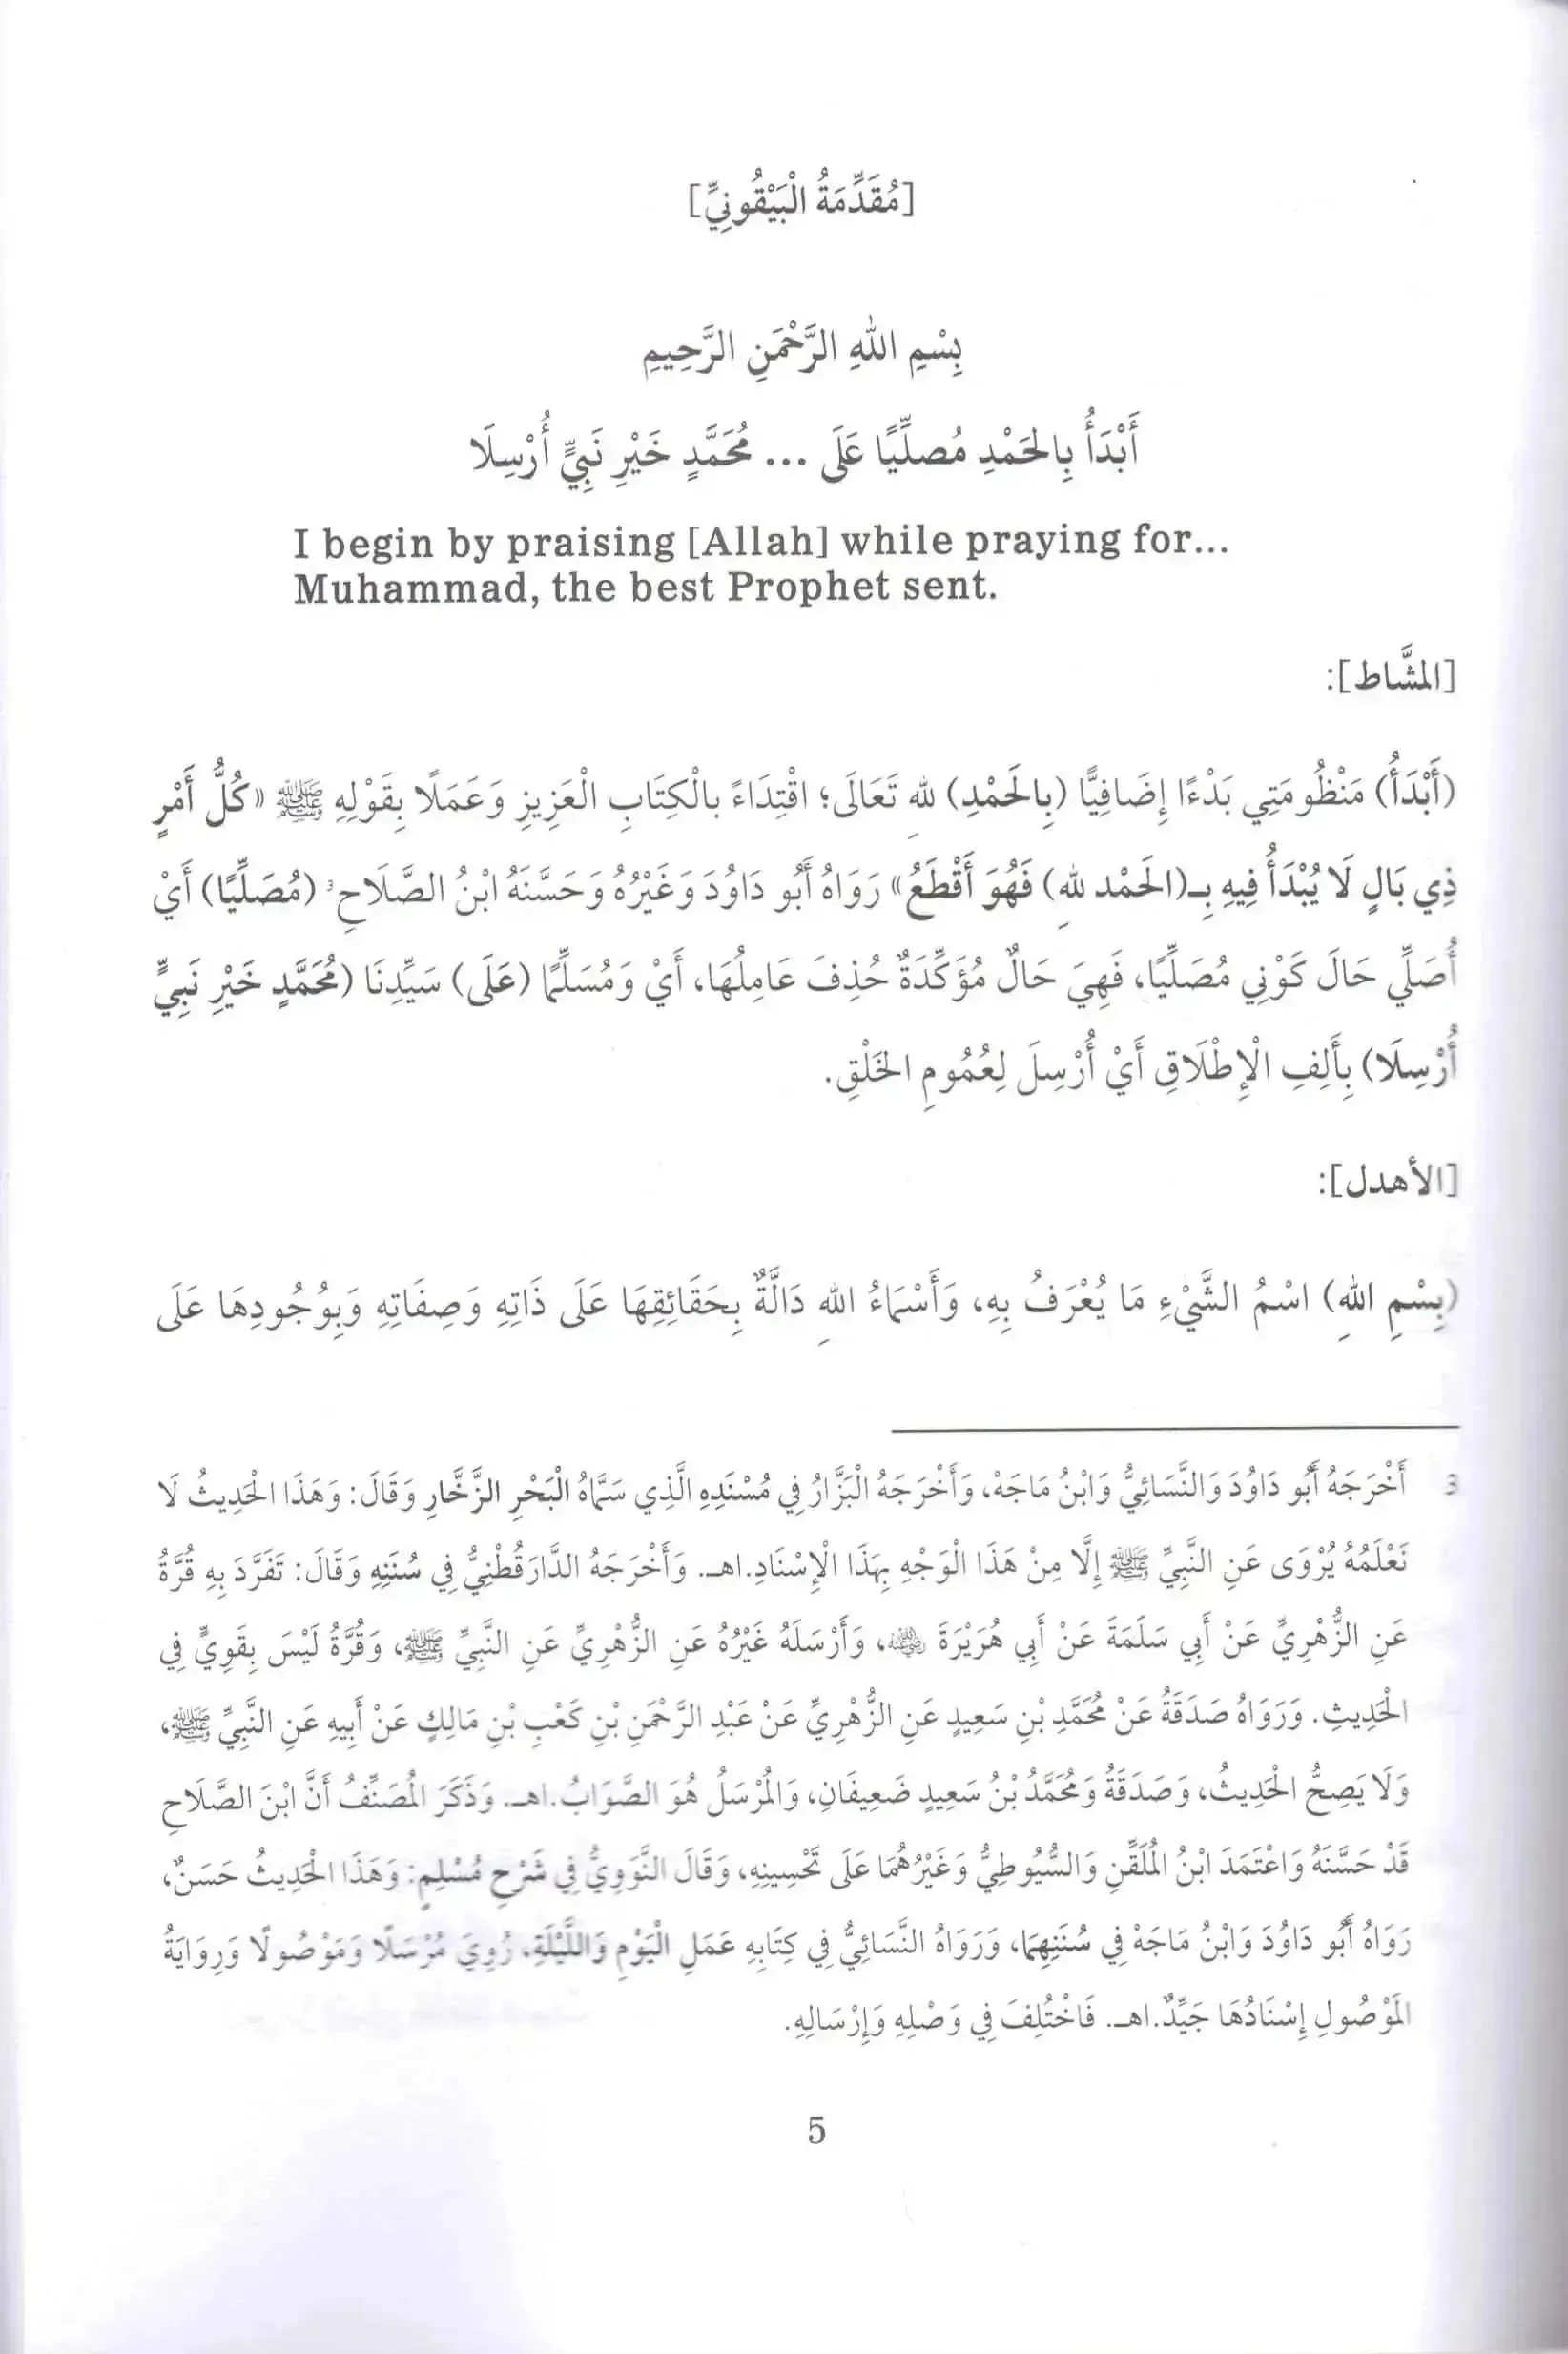 [مُقَدِّمَةُ الْبَيْقُونِيِّ]
بِسْمِ اللهِ الرَّحْمَنِ الرَّحِيمِ
أَبْدَأُ بِالحَمْدِ مُصَلِّيًا عَلَى ... مُحَمَّدٍ خَيْرِ نَبِيٍّ أُرْسِلَا
I begin by praising [Allah] while praying for...
Muhammad, the best Prophet sent.
[المشَّاط]:
(أَبْدَأُ) مَنْظُومَتِي بَدْءًا إِضَافِيًّا (بِالحَمْدِ) للهِ تَعَالَى؛ اقْتِدَاءً بالْكِتَابِ الْعَزِيزِ وَعَمَلًا بِقَوْلِهِ ﷺ «كُلُّ أَمْرٍ
ذِي بَالٍ لَا يُبْدَأُ فِيهِ بِـ(الحَمْد للهِ) فَهُوَ أَقْطَعُ» رَوَاهُ أَبُو دَاوُدَ وَغَيْرُهُ وَحَسَّنَهُ ابْنُ الصَّلَاحِ3 (مُصَلِّيًا) أَيْ
أُصَلِّي حَالَ كَوْنِي مُصَلِّيًا، فَهِيَ حَالٌ مُؤَكِّدَةٌ حُذِفَ عَامِلُهَا، أَيْ وَمُسَلِّمًا (عَلَى) سَيِّدِنَا (مُحَمَّدٍ خَيْرِ نَبِيٍّ
أُرْسِلَا) بِأَلِفِ الْإِطْلَاقِ أَيْ أُرْسِلَ لِعُمُومِ الخَلْقِ.
[الأهدل]:
(بِسْمِ اللهِ) اسْمُ الشَّيْءِ مَا يُعْرَفُ بِهِ، وَأَسْمَاءُ اللهِ دَالَّةٌ بِحَقَائِقِهَا عَلَى ذَاتِهِ وَصِفَاتِهِ وَبِوُجُودِهَا عَلَى
3 أَخْرَجَهُ أَبُو دَاوُدَ وَالنَّسَائِيُّ وَابْنُ مَاجَهْ، وَأَخْرَجَهُ الْبَزَّارُ فِي مُسْنَدِهِ الَّذِي سَمَّاهُ الْبَحْرِ الزَّخَّارِ وَقَالَ: وَهَذَا الْحَدِيثُ لَا
نَعْلَمُهُ يُرْوَى عَنِ النَّبِيِّ ﷺ إِلَّا مِنْ هَذَا الْوَجْهِ بِهَذَا الْإِسْنَادِ.اهـ. وَأَخْرَجَهُ الدَّارَقُطْنِيُّ فِي سُنَنِهِ وَقَالَ: تَفَرَّدَ بِهِ قُرَّةُ
عَنِ الزُّهْرِيِّ عَنْ أَبِي سَلَمَةَ عَنْ أَبِي هُرَيْرَةَ رضي الله عنه، وَأَرْسَلَهُ غَيْرُهُ عَنِ الزُّهْرِيِّ عَنِ النَّبِيِّ ﷺ، وَقُرَّةُ لَيْسَ بِقَوِيٍّ فِي
الْحَدِيثِ. وَرَوَاهُ صَدَقَةُ عَنْ مُحَمَّدِ بْنِ سَعِيدٍ عَنِ الزُّهْرِيِّ عَنْ عَبْدِ الرَّحْمَنِ بْنِ كَعْبِ بْنِ مَالِكٍ عَنْ أَبِيهِ عَنِ النَّبِيِّ ﷺ،
وَلَا يَصِحُّ الْحَدِيثُ، وَصَدَقَةُ وَمُحَمَّدُ بْنُ سَعِيدٍ ضَعِيفَانِ، وَالْمُرْسَلُ هُوَ الصَّوَابُ.اهـ. وَذَكَرَ الْمُصَنِّفُ أَنَّ ابْنَ الصَّلَاحِ
قَدْ حَسَّنَهُ وَاعْتَمَدَ ابْنُ الْمُلَقِّنِ وَالسُّيُوطِيُّ وَغَيْرُهُمَا عَلَى تَحْسِينِهِ، وَقَالَ النَّوَوِيُّ فِي شَرْحِ مُسْلِمٍ: وَهَذَا الْحَدِيثُ حَسَنٌ،
رَوَاهُ أَبُو دَاوُدَ وَابْنُ مَاجَهْ فِي سُنَنِهِمَا، وَرَوَاهُ النَّسَائِيُّ فِي كِتَابِهِ عَمَلِ الْيَوْمِ وَاللَّيْلَةِ، رُوِيَ مُرْسَلًا وَمَوْصُولًا وَرِوَايَةُ
الْمَوْصُولِ إِسْنَادُهَا جَيِّدٌ.اهـ. فَاخْتُلِفَ فِي وَصْلِهِ وَإِرْسَالِهِ.
5